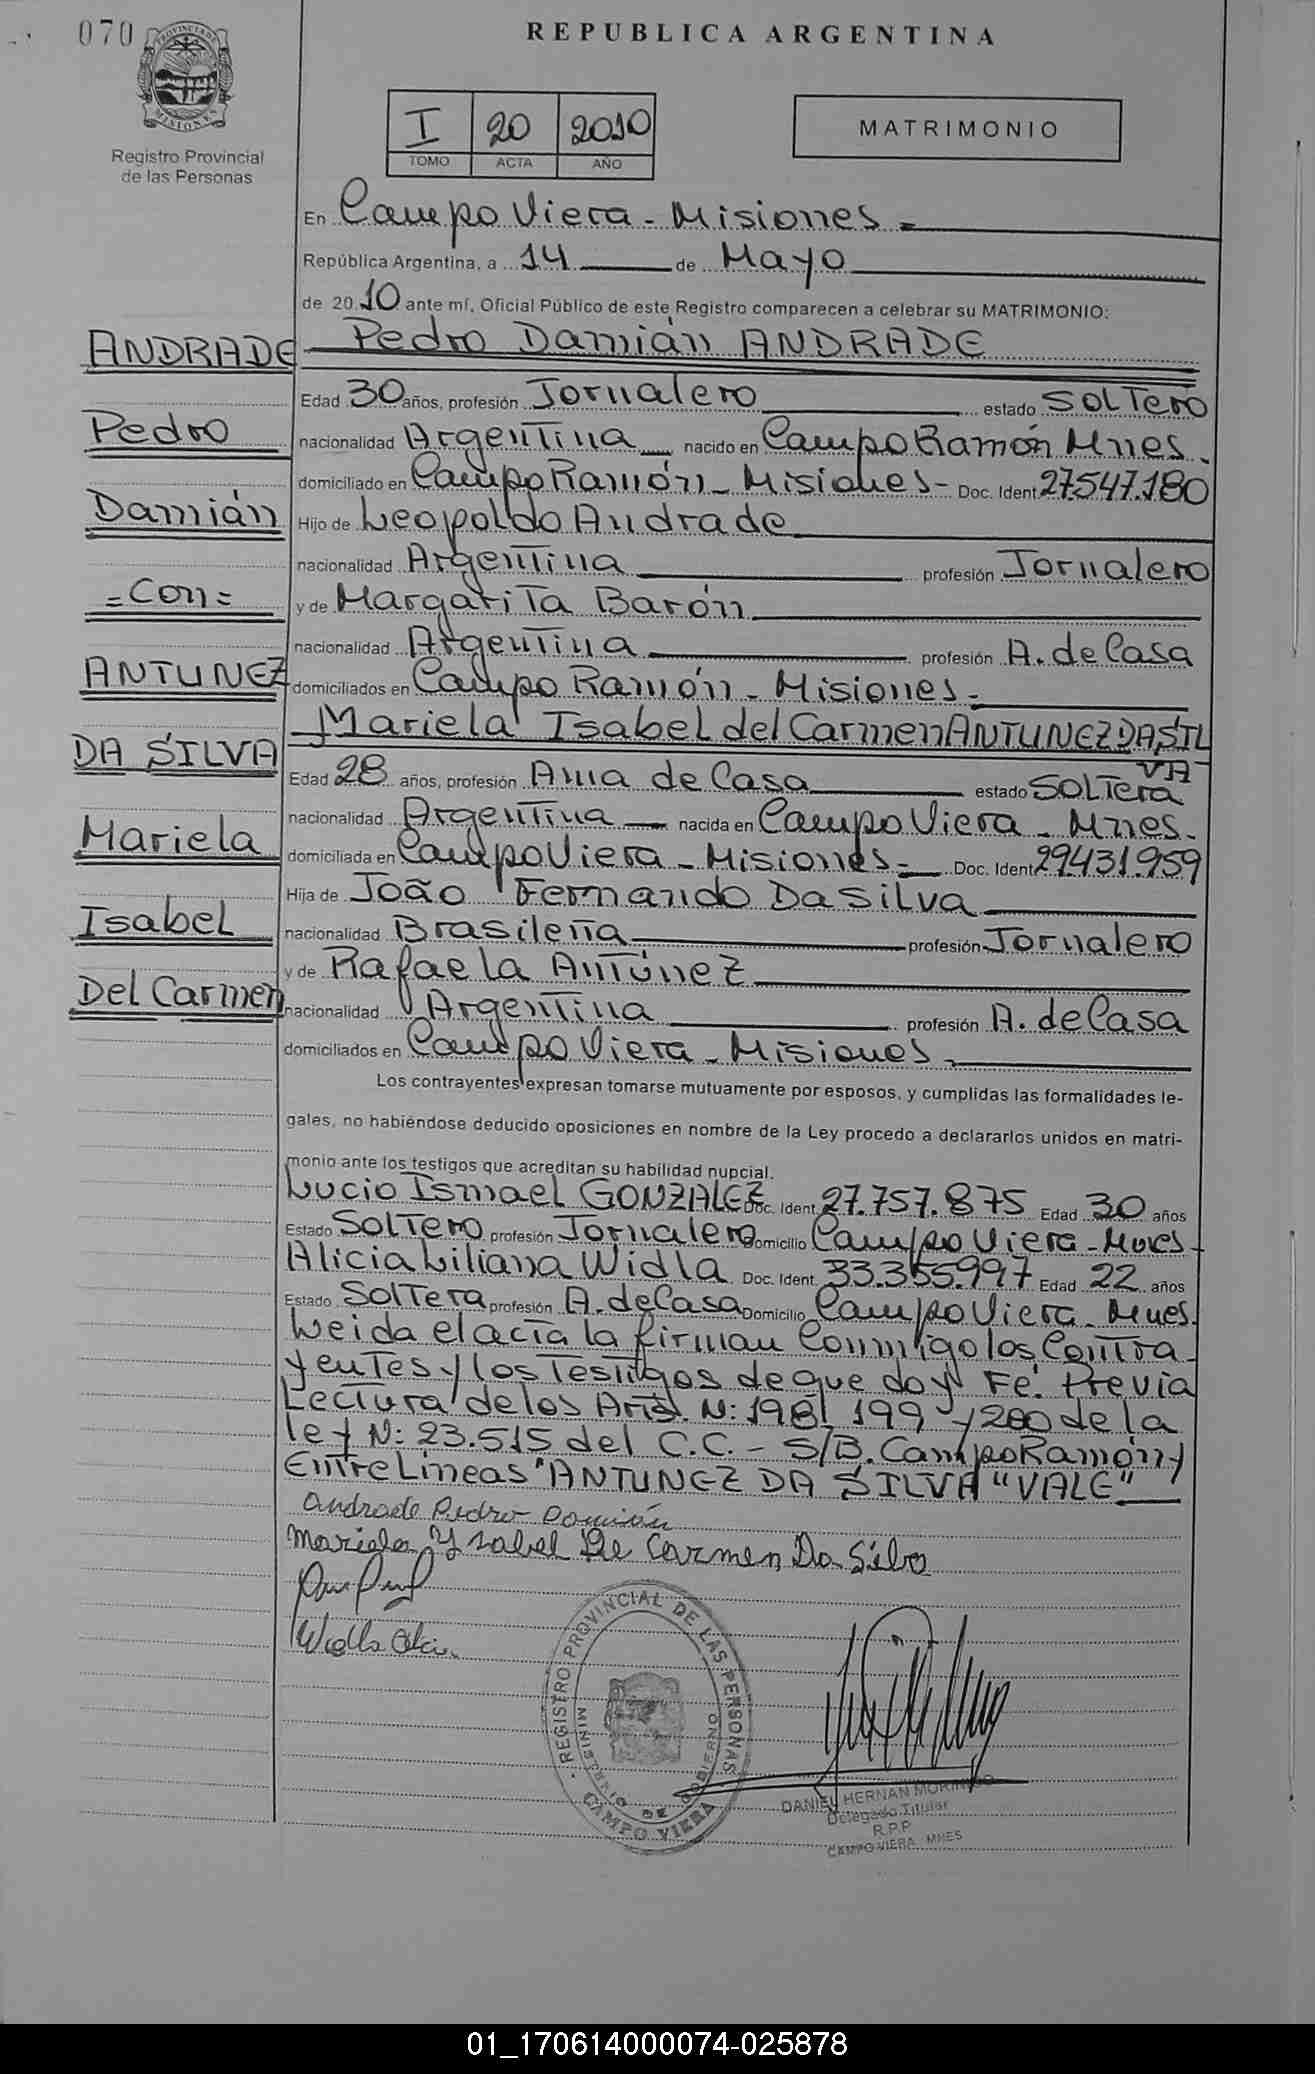 070
REPUBLICA ARGENTINA
PROVINCIA DE
MISIONES
Registro Provincial
de las Personas
I 20 2010
TOMO ACTA AÑO
MATRIMONIO
En Campo Viera - Misiones =
República Argentina, a 14 de Mayo
de 20 10 ante mí, Oficial Público de este Registro comparecen a celebrar su MATRIMONIO:
ANDRADE
Pedro
Damián
= Con =
ANTUNEZ
DA SILVA
Mariela
Isabel
Del Carmen
Pedro Damián ANDRADE
Edad 30 años, profesión Jornalero estado SolTero
nacionalidad ArgenTina nacido en Campo Ramón Mnes.
domiciliado en Campo Ramón - Misiones - Doc. Ident 27547.180
Hijo de Leopoldo Andrade
nacionalidad ArgenTina profesión Jornalero
y de MargariTa Barón
nacionalidad ArgenTina profesión A. de Casa
domiciliados en Campo Ramón - Misiones -
Mariela Isabel del Carmen ANTUNEZ DA SIL
VA
Edad 28 años, profesión Ama de Casa estado SOLTera
nacionalidad ArgenTina nacida en Campo Viera - Mnes.
domiciliada en Campo Viera - Misiones - Doc. Ident 29431.959
Hija de João Fernando Da Silva
nacionalidad Brasileña profesión Jornalero
y de Rafaela AnTúnez
nacionalidad ArgenTina profesión A. de Casa
domiciliados en Campo Viera - Misiones -
Los contrayentes expresan tomarse mutuamente por esposos, y cumplidas las formalidades le-
gales, no habiéndose deducido oposiciones en nombre de la Ley procedo a declararlos unidos en matri-
monio ante los testigos que acreditan su habilidad nupcial.
Lucio Ismael GONZALEZ Doc. Ident. 27.757.875 Edad 30 años
Estado SolTero profesión Jornalero Domicilio Campo Viera - Mnes -
Alicia Liliana Widla Doc. Ident. 33.355.997 Edad 22 años
Estado SolTera profesión A. de Casa Domicilio Campo Viera - Mnes.
Leida el acTa la firman Conmigo los ConTra-
yenTes y los TesTigos de que doy Fe. Previa
LecTura de los ArTs. N: 198, 199 y 200 de la
ley N: 23.515 del C.C. - S/B. Campo Ramón y
EntreLineas "ANTUNEZ DA SILVA "VALE"
Andrade Pedro Damián
Mariela Ysabel De Carmen Da Silva
Widla
REGISTRO PROVINCIAL DE LAS PERSONAS
MINISTERIO DE GOBIERNO
CAMPO VIERA
DANIEL HERNAN
Delegado Titular
R.P.P
CAMPO VIERA - MNES
01_170614000074-025878